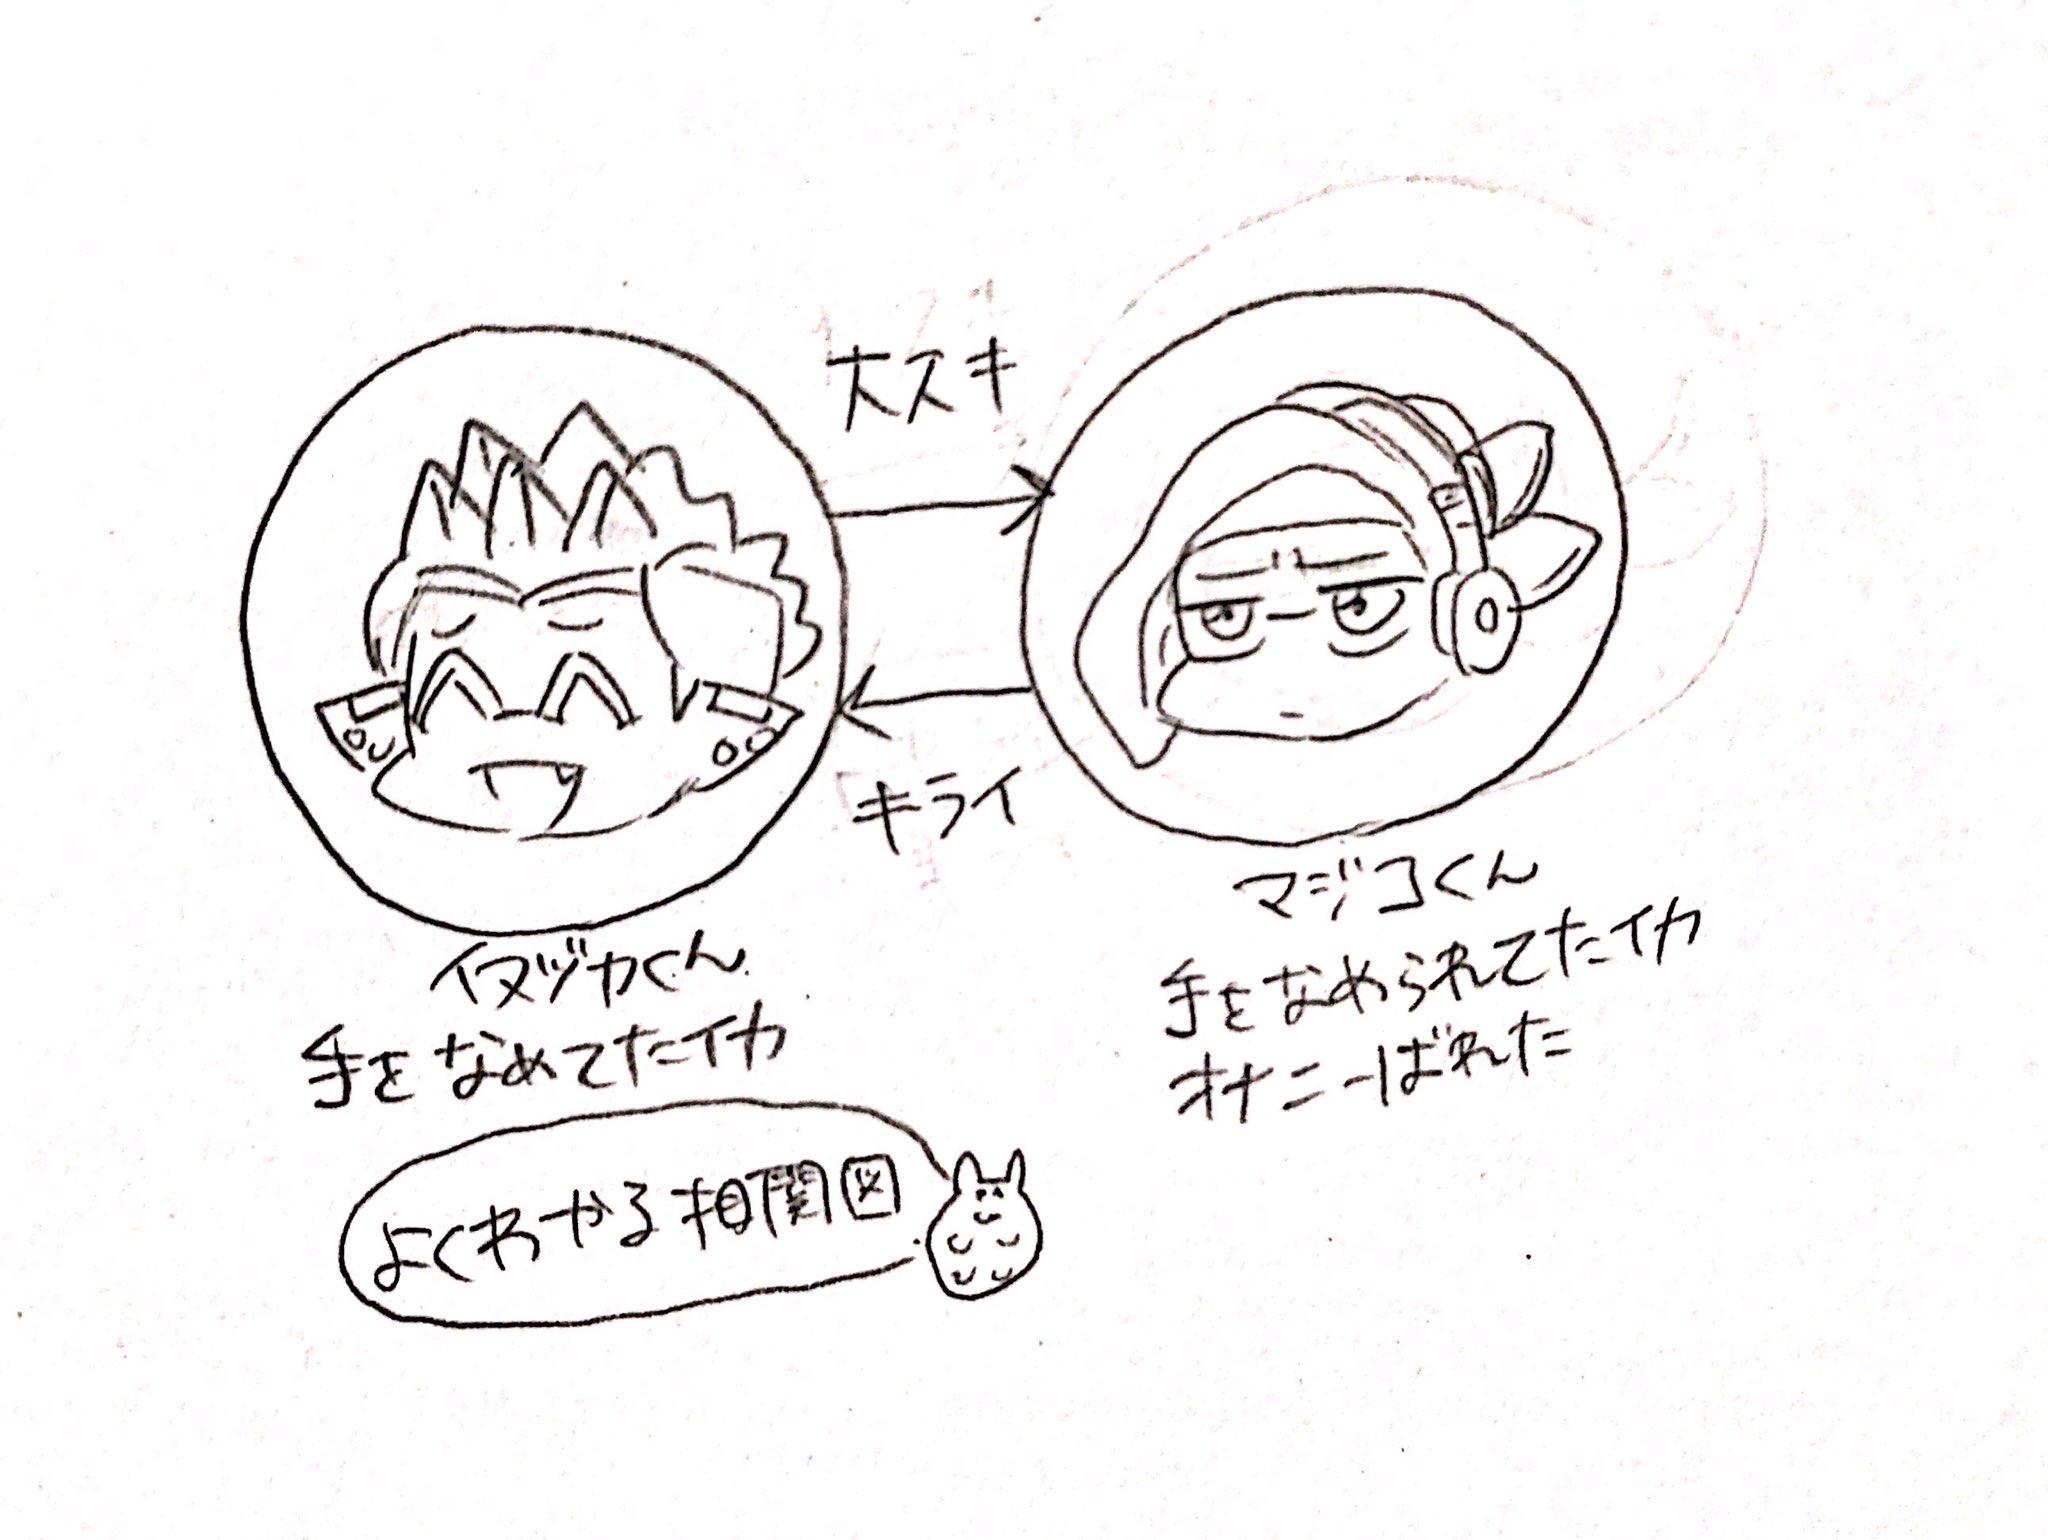 大スキ
キライ
イヌヅカくん
手をなめてたイカ
マジコくん
手をなめられてたイカ
オナニーばれた
よくわかる相関図